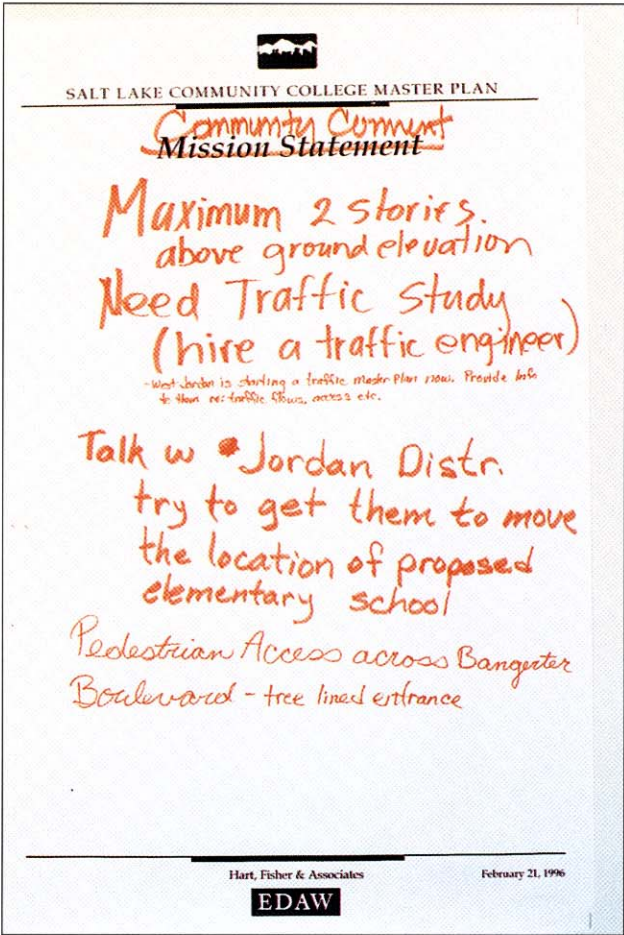 SALT LAKE COMMUNITY COLLEGE MASTER PLAN
Community Comment
Mission Statement
Maximum 2 stories.
above ground elevation
Need Traffic Study
(hire a traffic engineer)
- West Jordan is starting a traffic master Plan now. Provide info
to them re: traffic flows, access etc.
Talk w Jordan Distr.
try to get them to move
the location of proposed
elementary school
Pedestrian Access across Bangerter
Boulevard - tree lined entrance
Hart, Fisher & Associates
February 21, 1996
EDAW